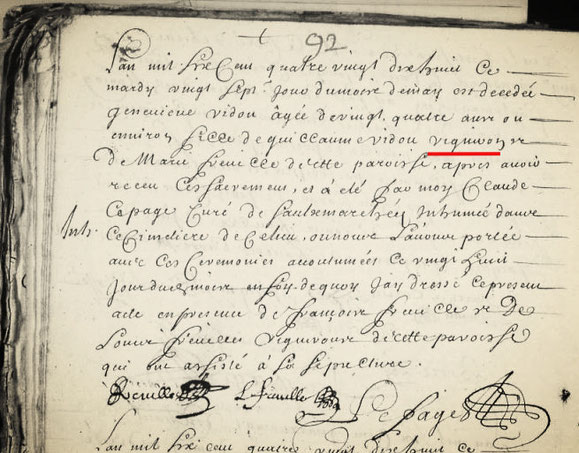 92
L'an mil six cent quatre vingt dix huit le
mardy vingt sept jour du moire de may est decedée
genevieve vidou âgée de vingt quatre anr ou
environ fille de guillaume vidou vigniron er
de Marie freuille de cette paroisse, apres avoir
receu les sacremens, et a été par moy Claude
Lepage Curé de inhumée dans
Inh. le Cimetiere de Celieu, ou nous l'avons portée
avec les Ceremonies accoutumées le vingt huit
jour du moire en foy de quoy jay dressé le present
acte en presence de françoir freuille er de
Louir freuille vignironr de cette paroisse
qui ont assisté à la sepulture.
freuille L freuille
Lepage
L'an mil six cent quatre vingt dix huit le